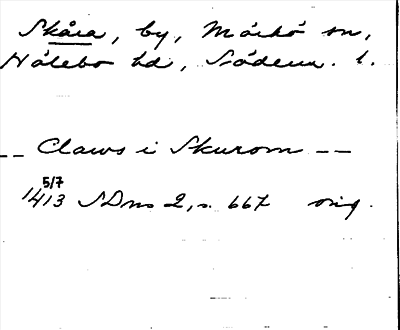 Skåra, by, Mörkö sn,
Hölebo hd, Söderm. l.
-- Claws i Skurom --
5/7
1413 SDns 2, s. 667 orig.